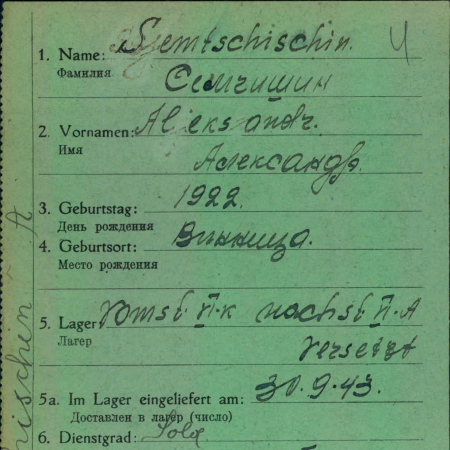 1. Name: Sjemtschischin.
Фамилия Семчишин
2. Vornamen: Aleksandr.
Имя Александр.
3. Geburtstag: 1922.
День рождения
4. Geburtsort: Винница.
Место рождения
5. Lager: II-K nach II-A
Лагер versetzt
5a. Im Lager eingeliefert am: 30.9.43.
Доставлен в лагер (число)
6. Dienstgrad: Sold